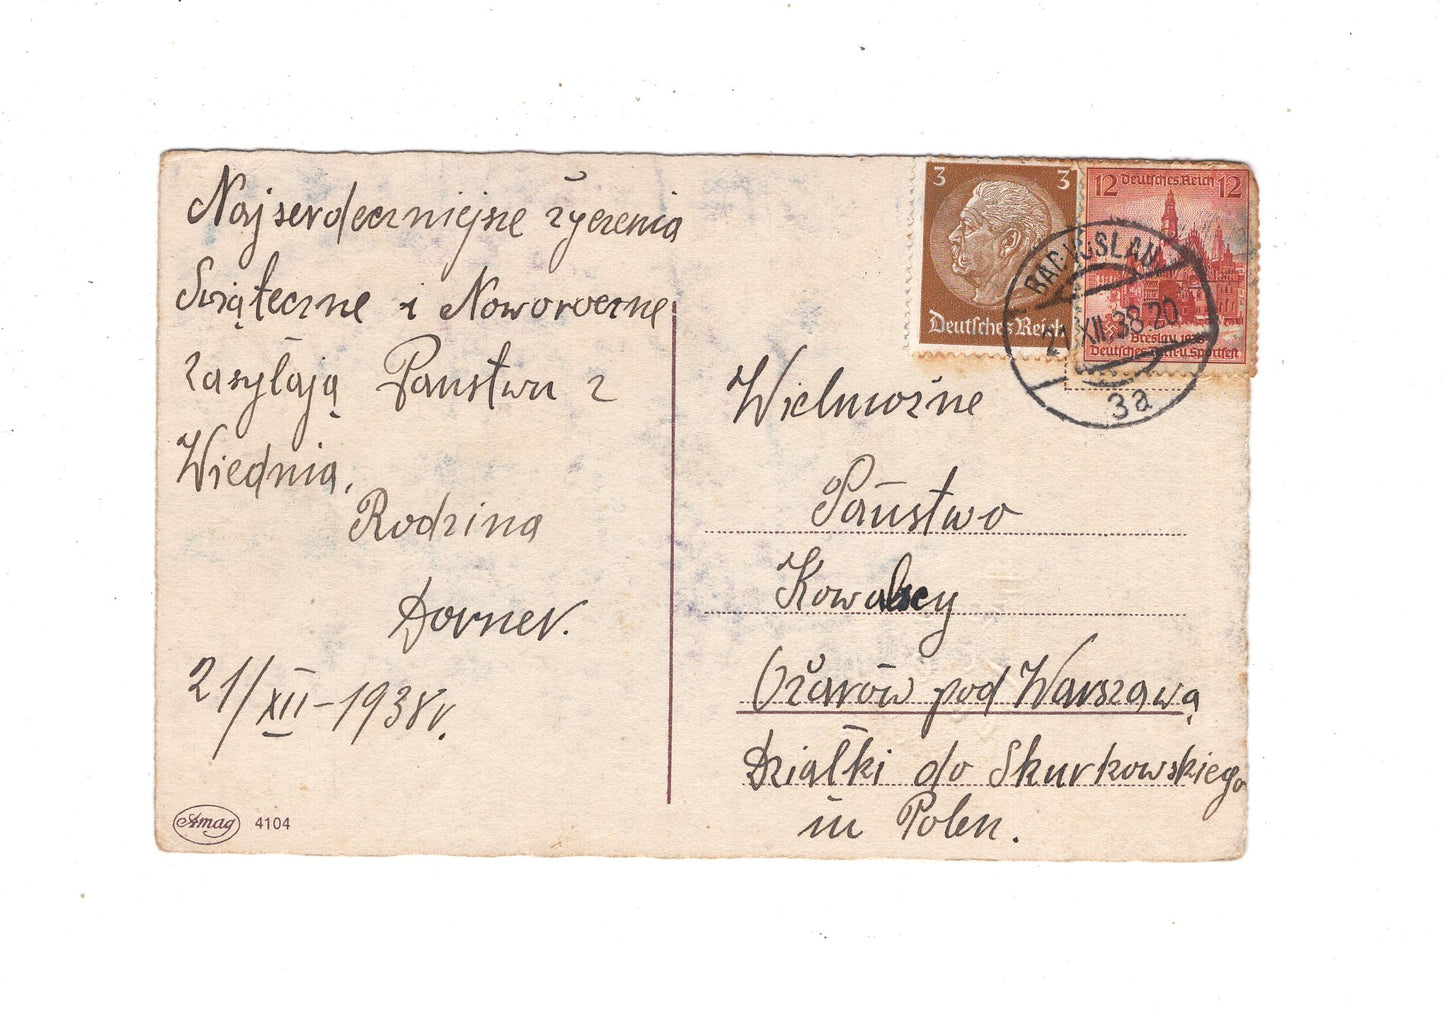 Najserdeczniejsze życzenia
Świąteczne i Noworoczne
zasyłają Państwu z
Wiednia,
Rodzina
Dorner.
21/XII-1938r.
Amag 4104
3 3
Deutsches Reich
12 Deutsches Reich 12
Breslau 1938
Deutsches Turn u Sportfest
BAD VÖSLAU
21.XII.38 20
3a
Wielmożne
Państwo
Kowalscy
Ożarów pod Warszawą
Działki do Skurkowskiego
in Polen.